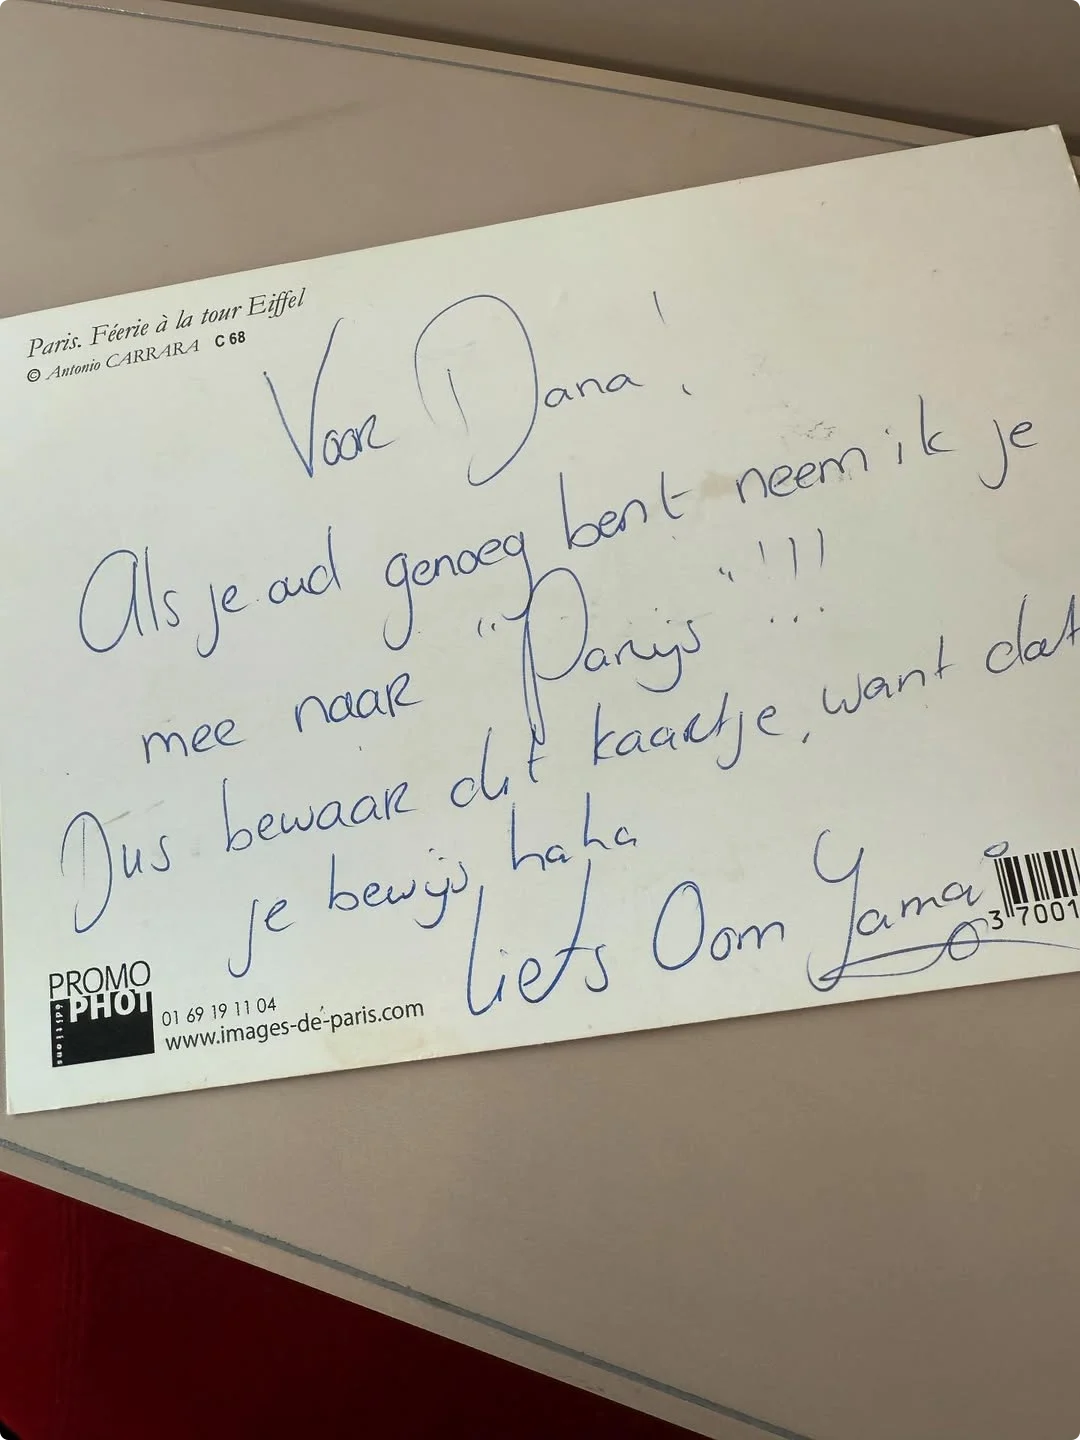 Paris. Féerie à la tour Eiffel
© Antonio CARRARA C 68
Voor Dana!
Als je oud genoeg bent neem ik je
mee naar "Parijs"!!!
Dus bewaar dit kaartje, want dat
je bewijs, haha
liefs Oom Yama
PROMO
PHOT
éditions
01 69 19 11 04
www.images-de-paris.com
3 7001